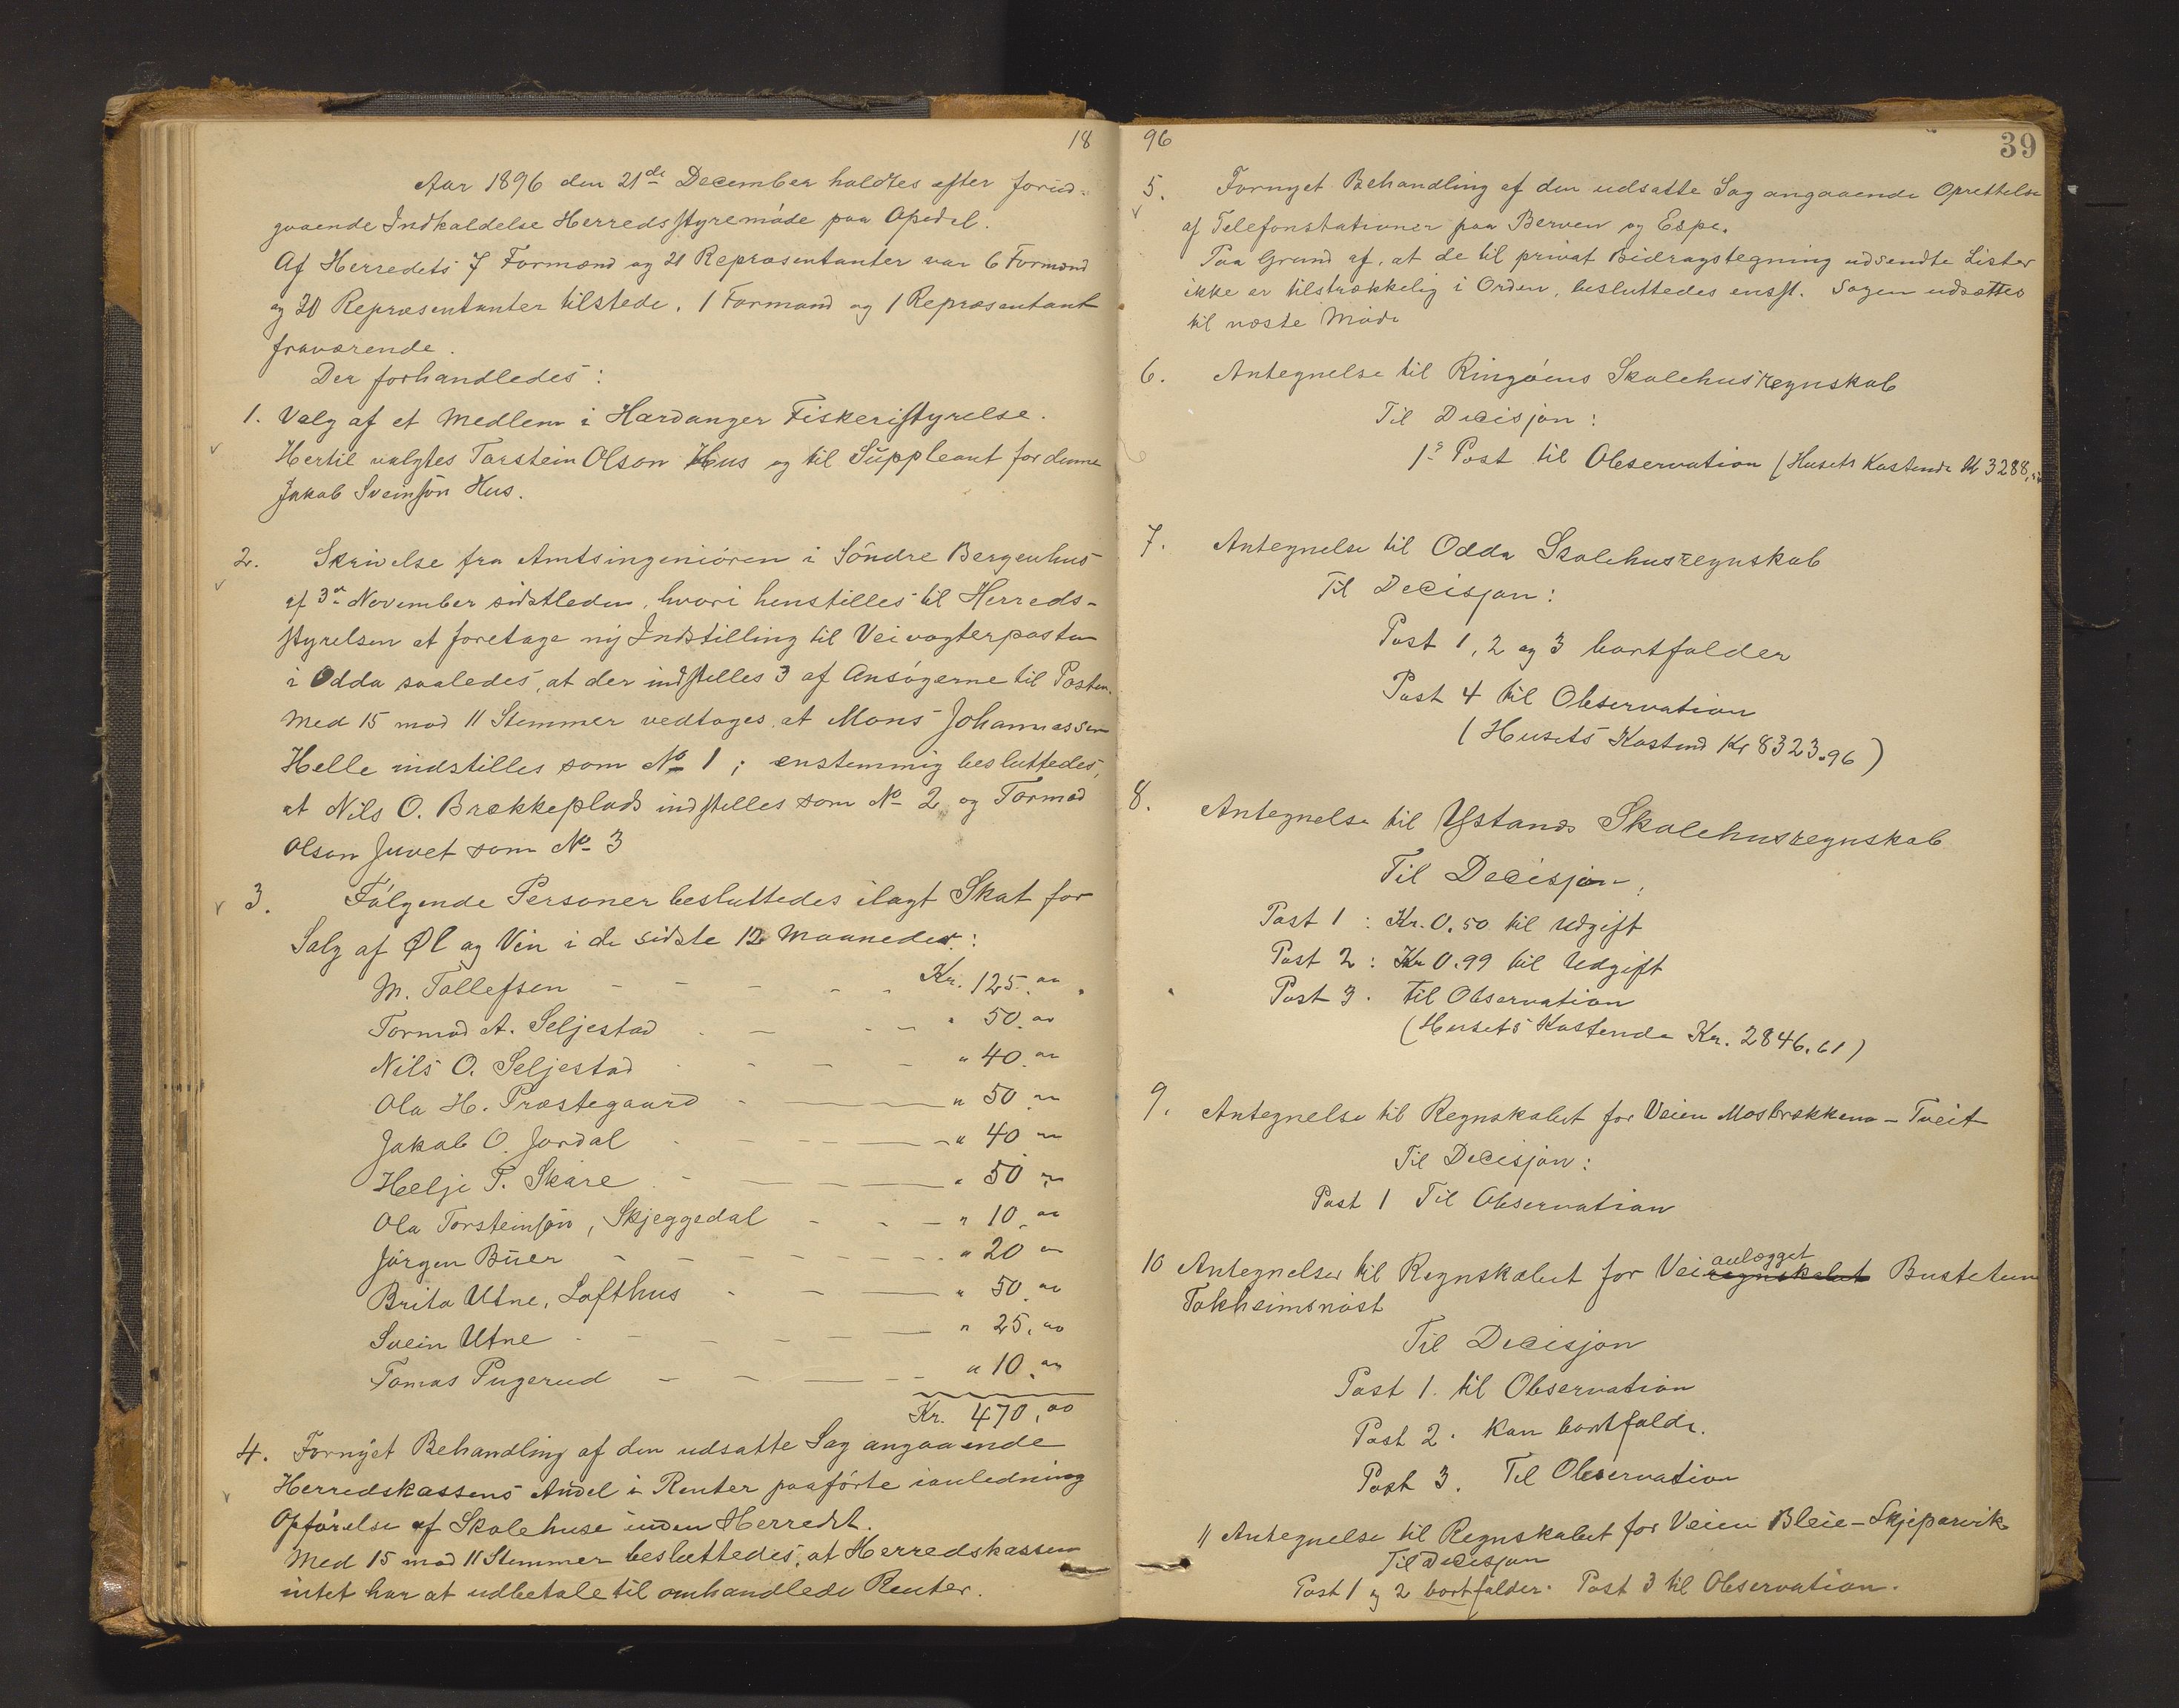 18
Aar 1896 den 21de December holdtes efter forud-
gaaende Indkaldelse Herredsstyremøde paa Opedal.
Af Herredets 7 Formænd og 21 Repræsentanter var 6 Formænd
og 20 Repræsentanter tilstede. 1 Formand og 1 Repræsentant
fraværende.
Der forhandledes:
1. Valg af et Medlem i Hardanger Fiskeristyrelse.
Hertil valgtes Torstein Olson Hus og til Suppleant for denne
Jakob Sveinsøn Hus.
2. Skrivelse fra Amtsingeniøren i Søndre Bergenhus
af 3die November sidstleden, hvori henstilles til Herreds-
styrelsen at foretage ny Indstilling til Veivogterposten
i Odda saaledes, at der indstilles 3 af Ansøgerne til Posten.
Med 15 mod 11 Stemmer vedtoges at Mons Johannessen
Helle indstilles som No 1; enstemmig besluttedes,
at Nils O. Brækkeplads indstilles som No 2 og Tormod
Olson Juvet som No 3
3. Følgende Personer besluttedes ilagt Skat for
Salg af Øl og Vin i de sidste 12 Maaneder:
M. Tollefsen - - - - - Kr. 125.00
Tormod A. Seljestad - - - - " 50.00
Nils O. Seljestad - - - - " 40.00
Ola H. Præstegaard - — — — " 50 00
Jakob O. Jordal - - - — — " 40 00
Helje T. Skare - - — — — " 50 00
Ola Torsteinsøn, Skjeggedal - - - " 10.00
Jørgen Buer - - - - - - " 20 00
Brita Utne, Lofthus - - — — " 50.00
Svein Utne - - - - — — " 25.00
Tomas Pugerud - - — - - " 10.00
Kr. 470,00
4. Fornyet Behandling af den udsatte Sag angaaende
Herredskassens Andel i Renter paaførte ianledning
Opførelse af Skolehuse inden Herredet.
Med 15 mod 11 Stemmer besluttedes, at Herredskassen
intet har at udbetale til omhandlede Renter.
96
39
5. Fornyet Behandling af den udsatte Sag angaaende Oprettelse
af Telefonstationer paa Berven og Espe.
Paa Grund af, at de til privat Bidragstegning udsendte Lister
ikke er tilstrækkelig i Orden, besluttedes enst. Sagen udsættes
til næste Møde
6. Antegnelse til Ringøens Skolehusregnskab
Til Decisjon:
1s Post til Observation (Husets Kostende Kr 3288,
7. Antegnelse til Odda Skolehusregnskab
Til Decisjon:
Post 1, 2 og 3 bortfalder
Post 4 til Observation
(Husets Kostend Kr 8323.96)
8. Antegnelse til Ystanes Skolehusregnskab
Til Decisjon:
Post 1: Kr. 0.50 til Udgift
Post 2: Kr 0.99 til Udgift
Post 3. til Observation
(Husets Kostende Kr. 2846.61)
9. Antegnelse til Regnskabet for Veien Mosbrækkene - Tveit
Til Decisjon:
Post 1 Til Observation
10 Antegnelser til Regnskabet for Veiregnskabet anlægget Bustetun
Tokheimsnøst
Til Decisjon
Post 1. til Observation
Post 2. kan bortfalde.
Post 3. Til Observation
11 Antegnelse til Regnskabet for Veien Bleie - Skjeparvik
Til Decisjon
Post 1 og 2 bortfalder. Post 3 til Observation.